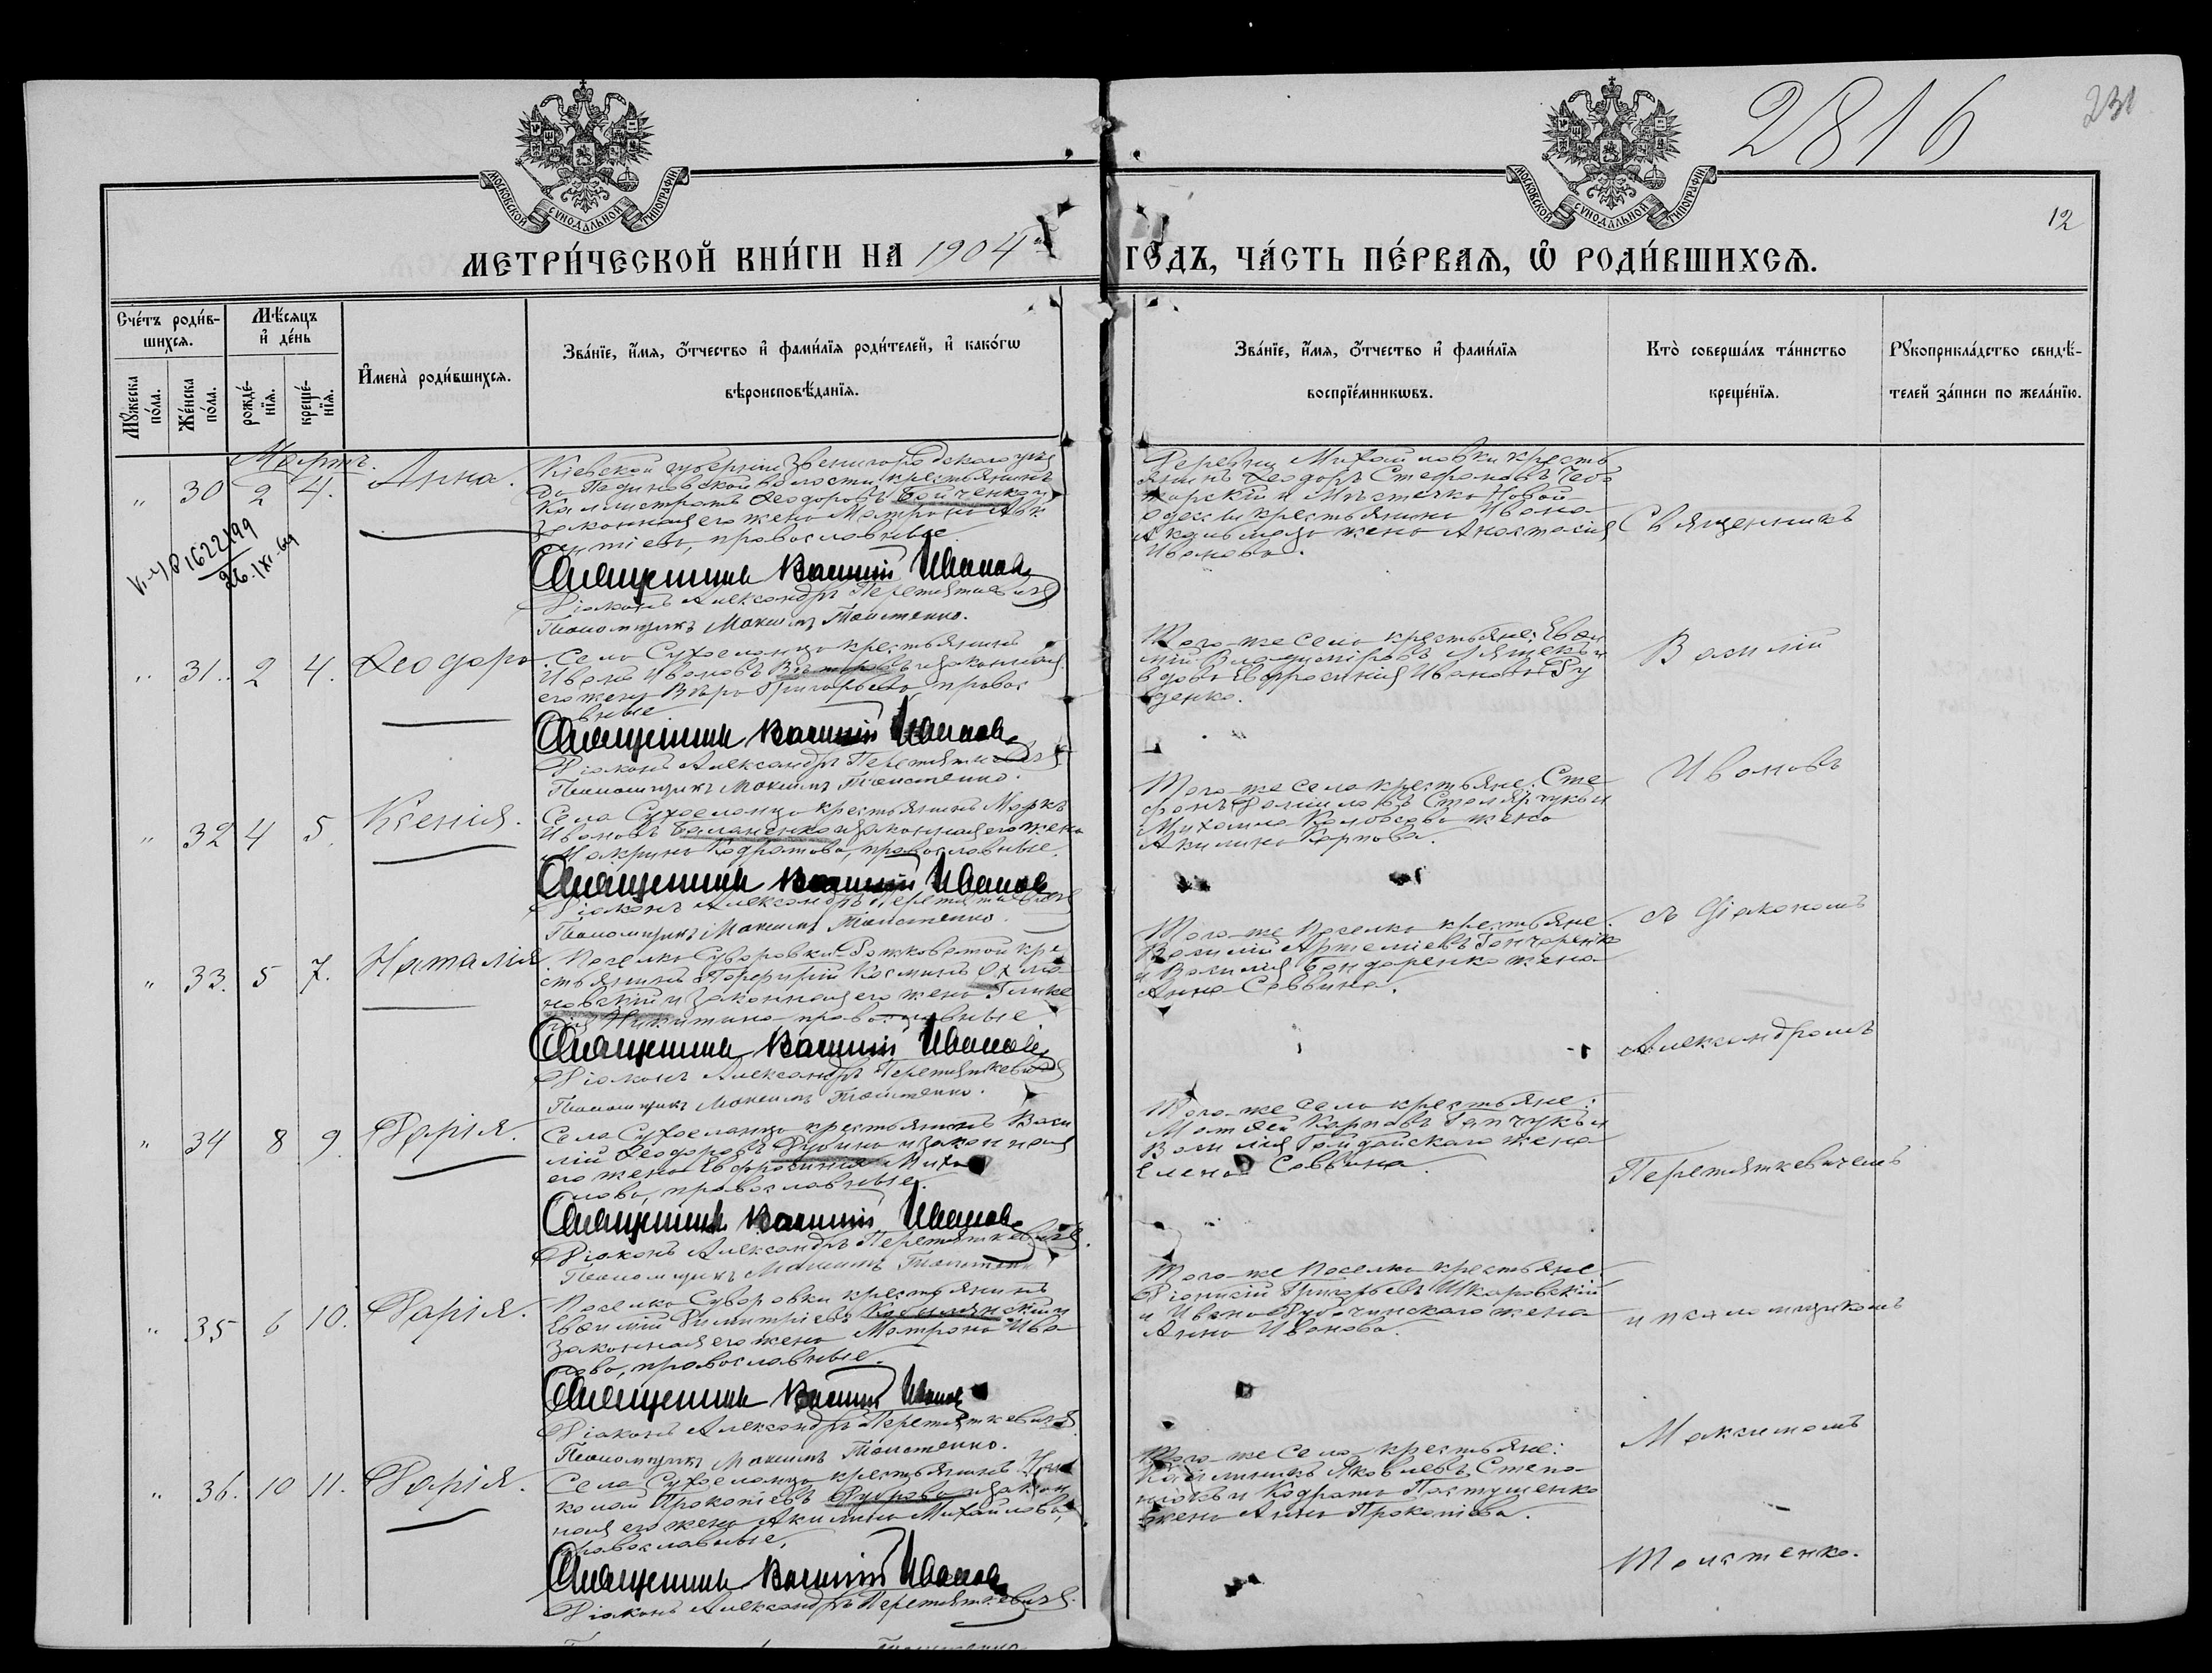 2816
231
12
МОСКОВСКОЙ СѴНОДАЛЬНОЙ ТИПОГРАФІИ
МОСКОВСКОЙ СѴНОДАЛЬНОЙ ТИПОГРАФІИ
МЕТРИ́ЧЕСКОЙ КНИ́ГИ НА 1904 ГО́ДЪ, ЧА́СТЬ ПЕ́РВАѦ, Ѽ РОДИ́ВШИХСѦ.
Сче́тъ роди́в-
шихсѧ.
Мꙋ́жеска по́ла.
Же́нска по́ла.
Мѣ́сѧцъ
и҆ де́нь
рожде́-
нїѧ.
креще́-
нїѧ.
И҆мена̀ роди́вшихсѧ.
Зва́нїе, и҆́мѧ, ѻ҆́тчество и҆ фами́лїѧ роди́телей, и҆ како́гѡ
вѣроисповѣ́данїѧ.
Зва́нїе, и҆́мѧ, ѻ҆́тчество и҆ фами́лїѧ
воспрїе́мникѡвъ.
Кто̀ соверша́лъ та́инство
креще́нїѧ.
Рꙋкоприкла́дство свидѣ́-
телей за́писи по жела́нїю.
Мартъ.
„ 30 2 4. Анна.
Кіевской губерніи Звенигородскаго уѣз
да волости крестьянинъ
Каллистратъ Ѳеодоровъ Бойченко и
законная его жена Матрона
православные.
Священникъ Василій Ивановъ
Діаконъ Александръ Перетяткевичъ
Псаломщикъ Максимъ Толстенко.
Деревни Михайловки кресть
янинъ Ѳеодоръ Стефановъ
и Мѣстечка Новой-
Одессы крестьянина Ивана
жена Анастасія
Иванова.
1622199
26.IXI-69
„ 31. 2 4. Ѳеодора
Села Сухоеланца крестьянинъ
Иванъ Ивановъ и законная
его жена Вѣра Григорьева, правос
лавные
Священникъ Василій Ивановъ
Діаконъ Александръ Перетяткевичъ
Псаломщикъ Максимъ Толстенко.
Того-же села крестьяне: Евѳи
мій Владиміровъ и
вдова Евфросинія Иванова Ру
денко.
„ 32 4 5. Ксенія.
Села Сухоеланца крестьянинъ Маркъ
Ивановъ Баланенко и законная его жена
Макрина Кодратова, православные.
Священникъ Василій Ивановъ
Діаконъ Александръ Перетяткевичъ
Псаломщикъ Максимъ Толстенко.
Того-же села крестьяне: Сте
фанъ Даніиловъ Столярчукъ и
Михаила жена
Акилина Карпова.
„ 33. 5 7. Наталія
Поселка Суворовки крe
стьянинъ Порфирій Косминъ Охма
новскій и законная его жена Глике
рія Никитина православные
Священникъ Василій Ивановъ
Діаконъ Александръ Перетяткевичъ
Псаломщикъ Максимъ Толстенко.
Того-же поселка крестьяне:
Василій Артеміевъ Гончаренко
и Василія Бондаренко жена
Анна Саввина.
„ 34 8 9. Дарія.
Села Сухоеланца крестьянинъ Васи
лій Ѳеодоровъ Дубина и законная
его жена Евфросинія Михай
лова, православные.
Священникъ Василій Ивановъ
Діаконъ Александръ Перетяткевичъ.
Псаломщикъ Максимъ Толстенко
Того-же села крестьяне:
Матѳей Карповъ Гапчукъ и
Василія Гайдайскаго жена
Елена Саввина.
„ 35 6 10. Дарія.
Поселка Суворовки крестьянинъ
Евѳимій Димитріевъ Кобылянскій и
законная его жена Матрона Ива
нова, православные.
Священникъ Василій Ивановъ
Діаконъ Александръ Перетяткевичъ.
Псаломщикъ Максимъ Толстенко.
Того-же поселка крестьяне:
Діонисій Григорьевъ Шкаровскій
и Ивана жена
Анна Иванова.
„ 36. 10 11. Дарія.
Села Сухоеланца крестьянинъ Ни
колай Прокопіевъ и закон
ная его жена Акилина Михайлова,
православные,
Священникъ Василій Ивановъ
Діаконъ Александръ Перетяткевичъ.
Того-же села крестьяне:
Каллиникъ Яковлевъ Степа
нюкъ и Кодрата Пастушенко
жена Анна Прокопіева.
Священникъ
Василій
Ивановъ
съ Діакономъ
Александромъ
Перетяткевичемъ
и псаломщикомъ
Максимомъ
Толстенко.